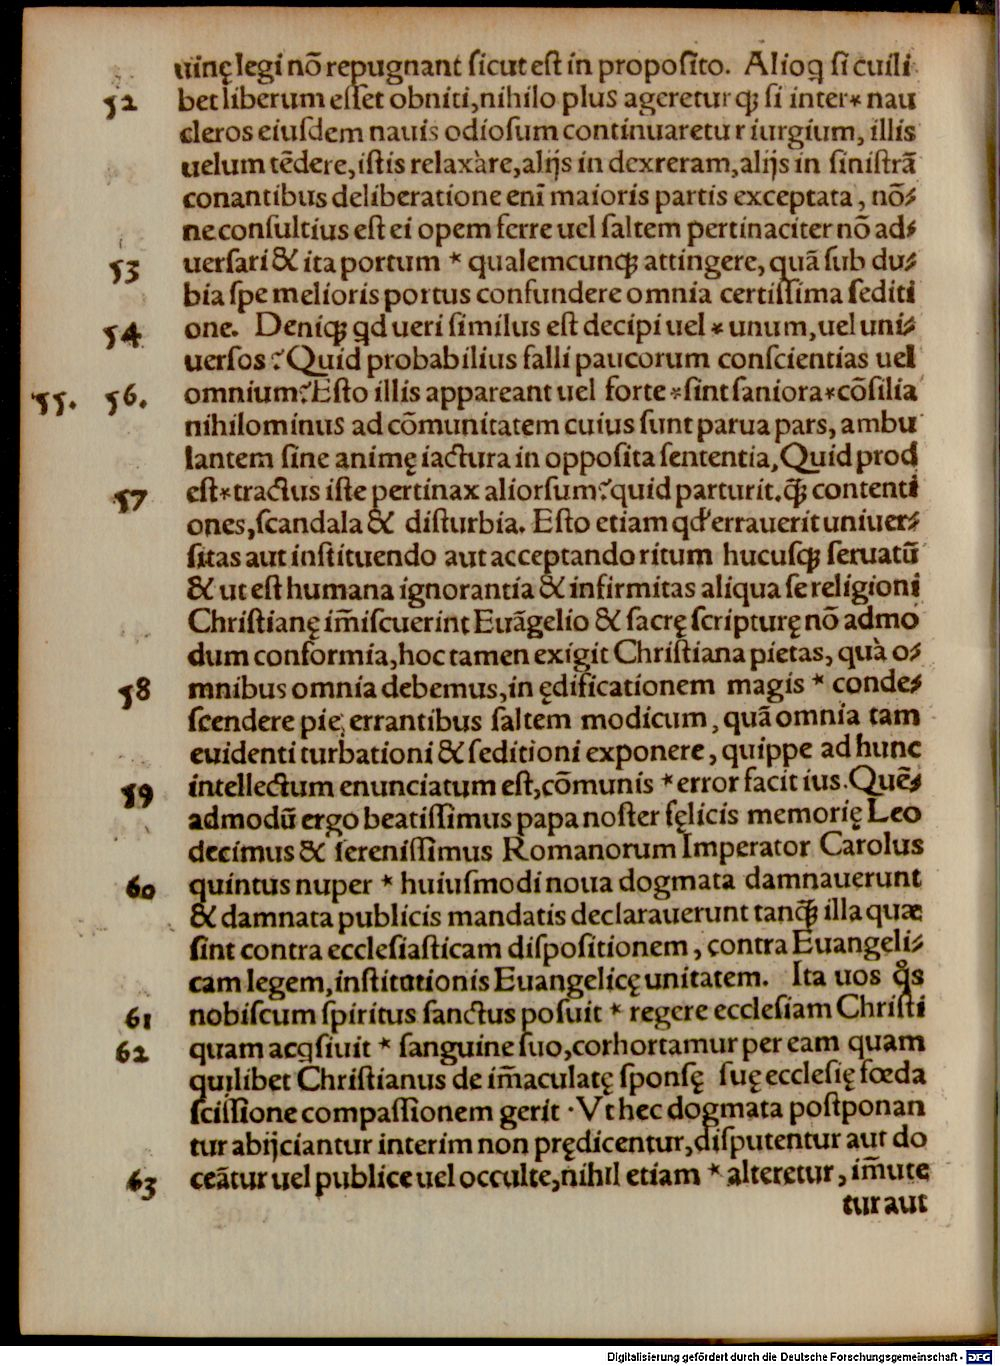 uinę legi nõ repugnant ſicut eſt in propoſito. Alioq̃ ſi cuili
52 bet liberum eſſet obniti, nihilo plus ageretur q̃ ſi inter * nau
cleros eiuſdem nauis odioſum continuaretur iurgium, illis
uelum tẽdere, iſtis relaxàre, alijs in dexreram, alijs in ſiniſtrã
conantibus deliberatione enĩ maioris partis exceptata, nõ⸗
ne conſultius eſt ei opem ferre uel ſaltem pertinaciter nõ ad⸗
53 uerſari & ita portum * qualemcunq; attingere, quã ſub du⸗
bia ſpe melioris portus confundere omnia certiſſima ſediti
54 one. Deniq; qd ueri ſimilus eſt decipi uel * unum, uel uni⸗
uerſos? Quid probabilius falli paucorum conſcientias uel
55. 56. omnium? Eſto illis appareant uel forte * ſint ſaniora * cõſilia
nihilominus ad cõmunitatem cuius ſunt parua pars, ambu
lantem ſine animę iactura in oppoſita ſententia, Quid prod
57 eſt * tractus iſte pertinax aliorſum? quid parturit. q̃ contenti
ones, ſcandala & diſturbia. Eſto etiam qd' errauerit uniuer⸗
ſitas aut inſtituendo aut acceptando ritum hucuſq; ſeruatũ
& ut eſt humana ignorantia & infirmitas aliqua ſe religioni
Chriſtianę im̃iſcuerint Euãgelio & ſacrę ſcripturę nõ admo
dum conformia, hoc tamen exigit Chriſtiana pietas, quà o⸗
58 mnibus omnia debemus, in ędificationem magis * conde⸗
ſcendere pie, errantibus ſaltem modicum, quã omnia tam
euidenti turbationi & ſeditioni exponere, quippe ad hunc
59 intellectum enunciatum eſt, cõmunis * error facit ius. Quẽ⸗
admodũ ergo beatiſſimus papa noſter fęlicis memorię Leo
decimus & ſereniſſimus Romanorum Imperator Carolus
60 quintus nuper * huiuſmodi noua dogmata damnauerunt
& damnata publicis mandatis declarauerunt tanq̃ illa quæ
ſint contra eccleſiaſticam diſpoſitionem, contra Euangeli⸗
cam legem, inſtitutionis Euangelicę unitatem. Ita uos q̊s
61 nobiſcum ſpiritus ſanctus poſuit * regere eccleſiam Chriſti
62 quam acqſiuit * ſanguine ſuo, corhortamur per eam quam
quilibet Chriſtianus de im̃aculatę ſponſę ſuę eccleſię fœda
ſciſſione compaſſionem gerit · Vt hec dogmata poſtponan
tur abijciantur interim non prędicentur, diſputentur aut do
63 ceãtur uel publice uel occulte, nihil etiam * alteretur, im̃ute
tur aut
Digitalisierung gefördert durch die Deutsche Forschungsgemeinschaft - DFG